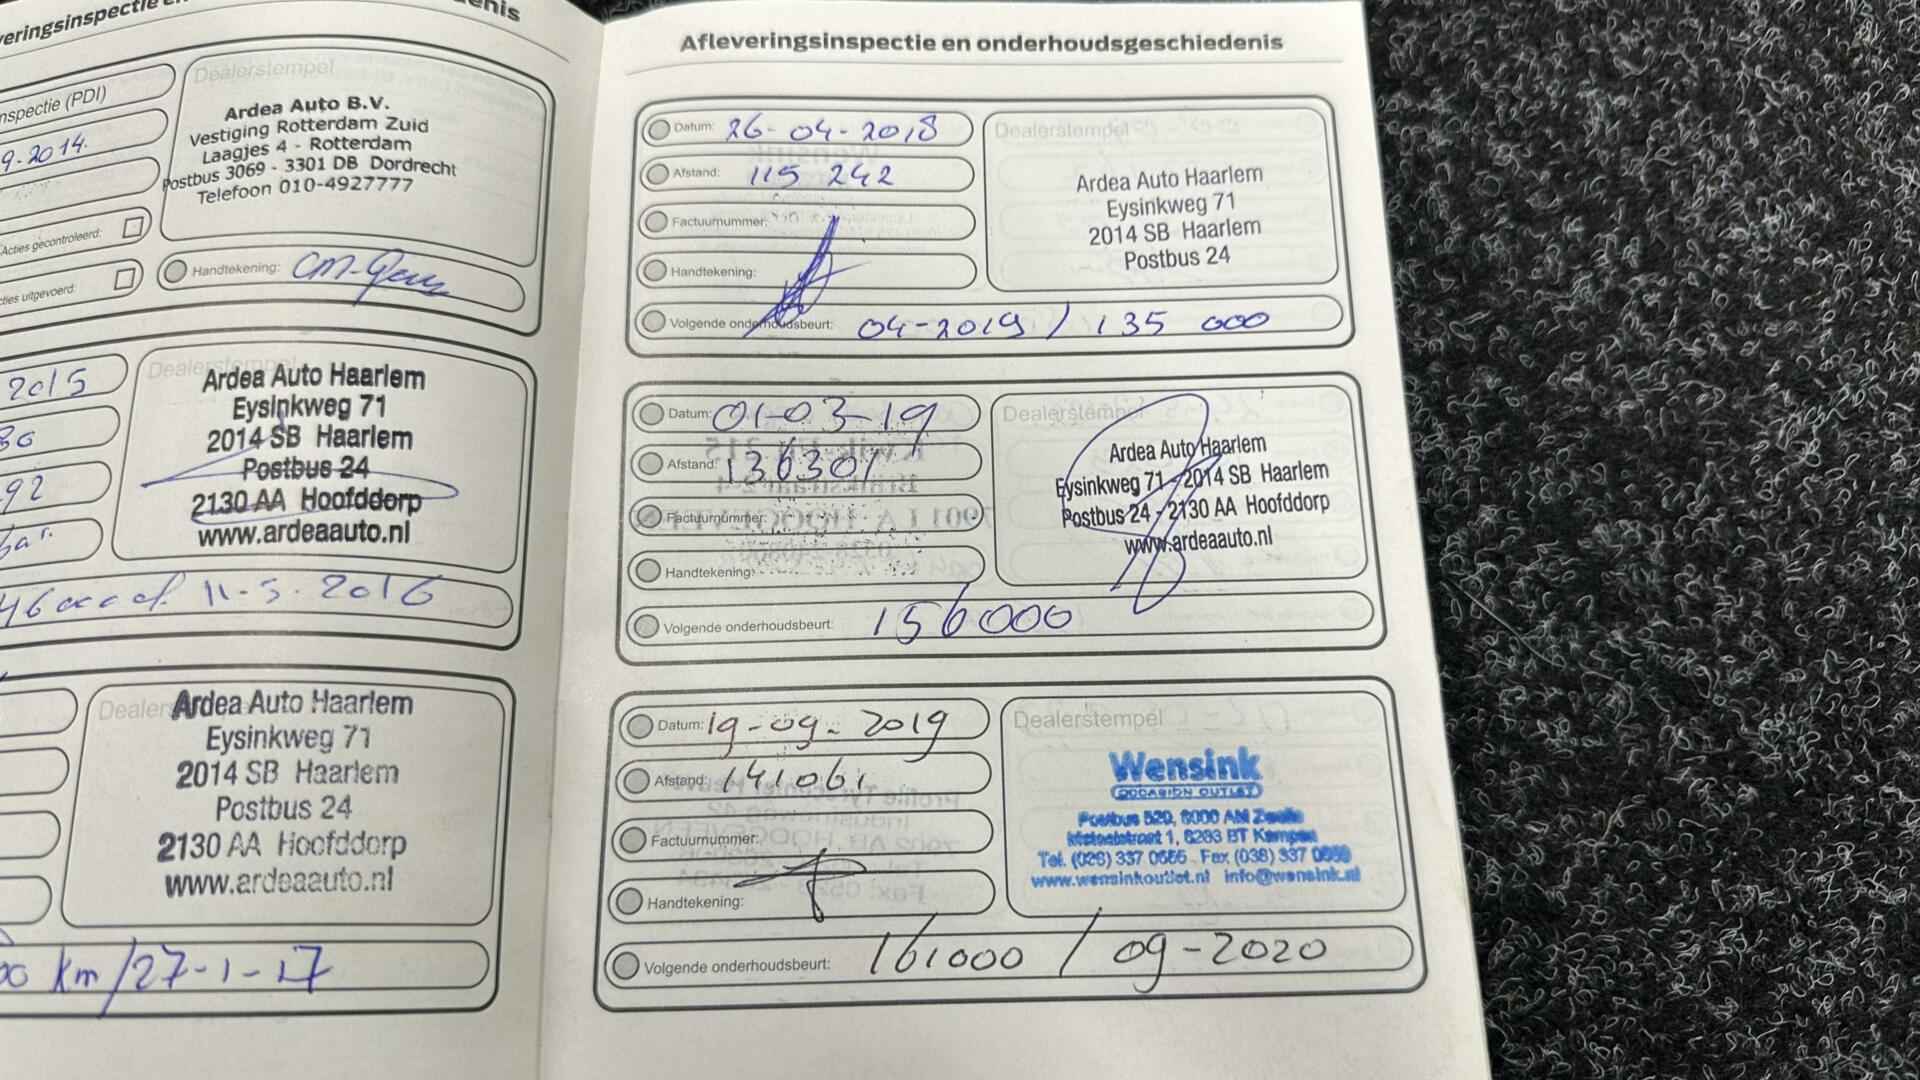 veringsinspectie en
denis
nspectie (PDI)
9-2014.
Acties gecontroleerd:
cties uitgevoerd:
Dealerstempel
Ardea Auto B.V.
Vestiging Rotterdam Zuid
Laagjes 4 - Rotterdam
Postbus 3069 - 3301 DB Dordrecht
Telefoon 010-4927777
Handtekening:
2015
92
Ardea Auto Haarlem
Eysinkweg 71
2014 SB Haarlem
Postbus 24
2130 AA Hoofddorp
www.ardeaauto.nl
11-5-2016
Dealerstempel
Ardea Auto Haarlem
Eysinkweg 71
2014 SB Haarlem
Postbus 24
2130 AA Hoofddorp
www.ardeaauto.nl
00 km/27-1-17
Afleveringsinspectie en onderhoudsgeschiedenis
Datum: 26-04-2018
Afstand: 115 242
Factuurnummer:
Handtekening:
Volgende onderhoudsbeurt: 04-2019 / 135 000
Dealerstempel
Ardea Auto Haarlem
Eysinkweg 71
2014 SB Haarlem
Postbus 24
Datum: 01-03-19
Afstand: 136301
Factuurnummer:
Handtekening:
Volgende onderhoudsbeurt: 156000
Dealerstempel
Ardea Auto Haarlem
Eysinkweg 71 - 2014 SB Haarlem
Postbus 24 - 2130 AA Hoofddorp
www.ardeaauto.nl
Datum: 19-09-2019
Afstand: 141061
Factuurnummer:
Handtekening:
Volgende onderhoudsbeurt: 161000 / 09-2020
Dealerstempel
Wensink
OCCASION OUTLET
Postbus 520, 8000 AM Zwolle
1, 8263 BT Kampen
Tel. (038) 337 Fax (038) 337
www.wensinkoutlet.nl info@wensink.nl